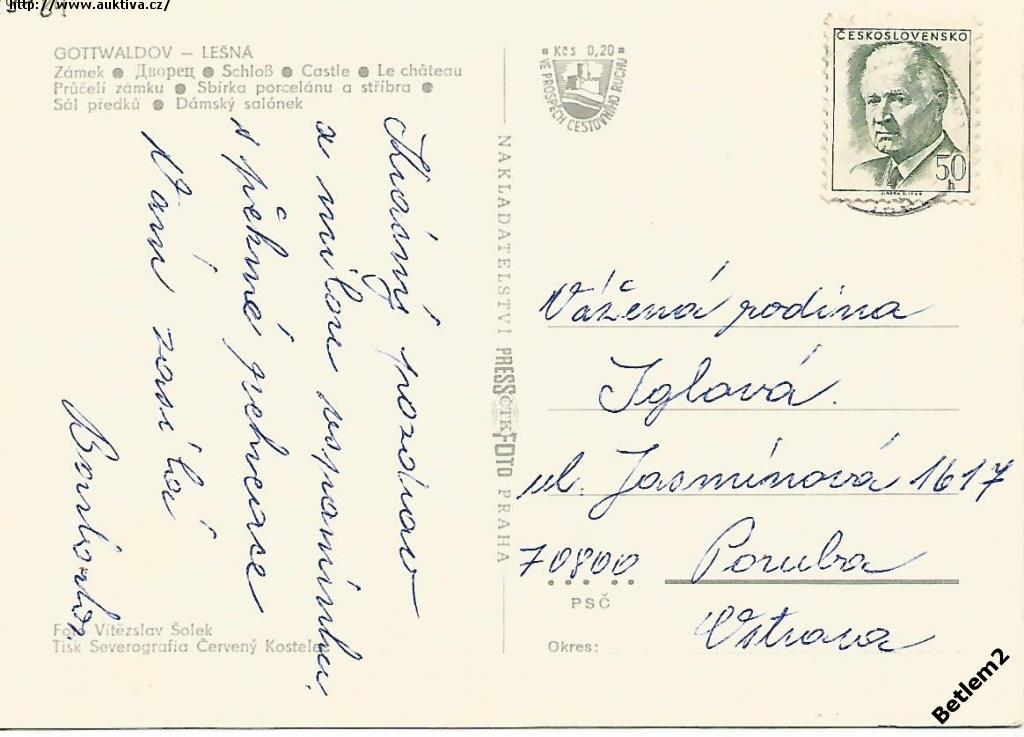 http://www.auktiva.cz/
GOTTWALDOV – LEŠNÁ
Zámek ● Дворец ● Schloß ● Castle ● Le château
Průčelí zámku ● Sbírka porcelánu a stříbra ●
Sál předků ● Dámský salónek
Krásný pozdrav
a milou vzpomínku
s pěkné
Vám zasílá
Kčs 0,20
VE PROSPĚCH CESTOVNÍHO RUCHU
ČESKOSLOVENSKO
50
h
NAKLADATELSTVÍ PRESSFOTO PRAHA
ČTK
Vážená rodina
Iglová.
ul. Jasmínová 1617
70800 Poruba
PSČ
Ostrava
Okres:
Foto Vítězslav Šolek
Tisk Severografia Červený Kostelec
Betlem2